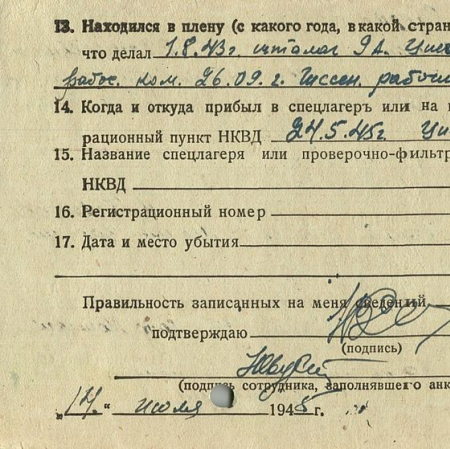 13. Находился в плену (с какого года, в какой стран
что делал 1.8.43г. шталаг 9А.
рабоч. ком. 26.09.г. Гиссен. рабоч
14. Когда и откуда прибыл в спецлагерь или на
рационный пункт НКВД 24.5.45г.
15. Название спецлагеря или проверочно-фильтр
НКВД
16. Регистрационный номер
17. Дата и место убытия
Правильность записанных на меня сведений
подтверждаю
(подпись)
(подпись сотрудника, заполнявшего анк
„14“ июля 1945г.